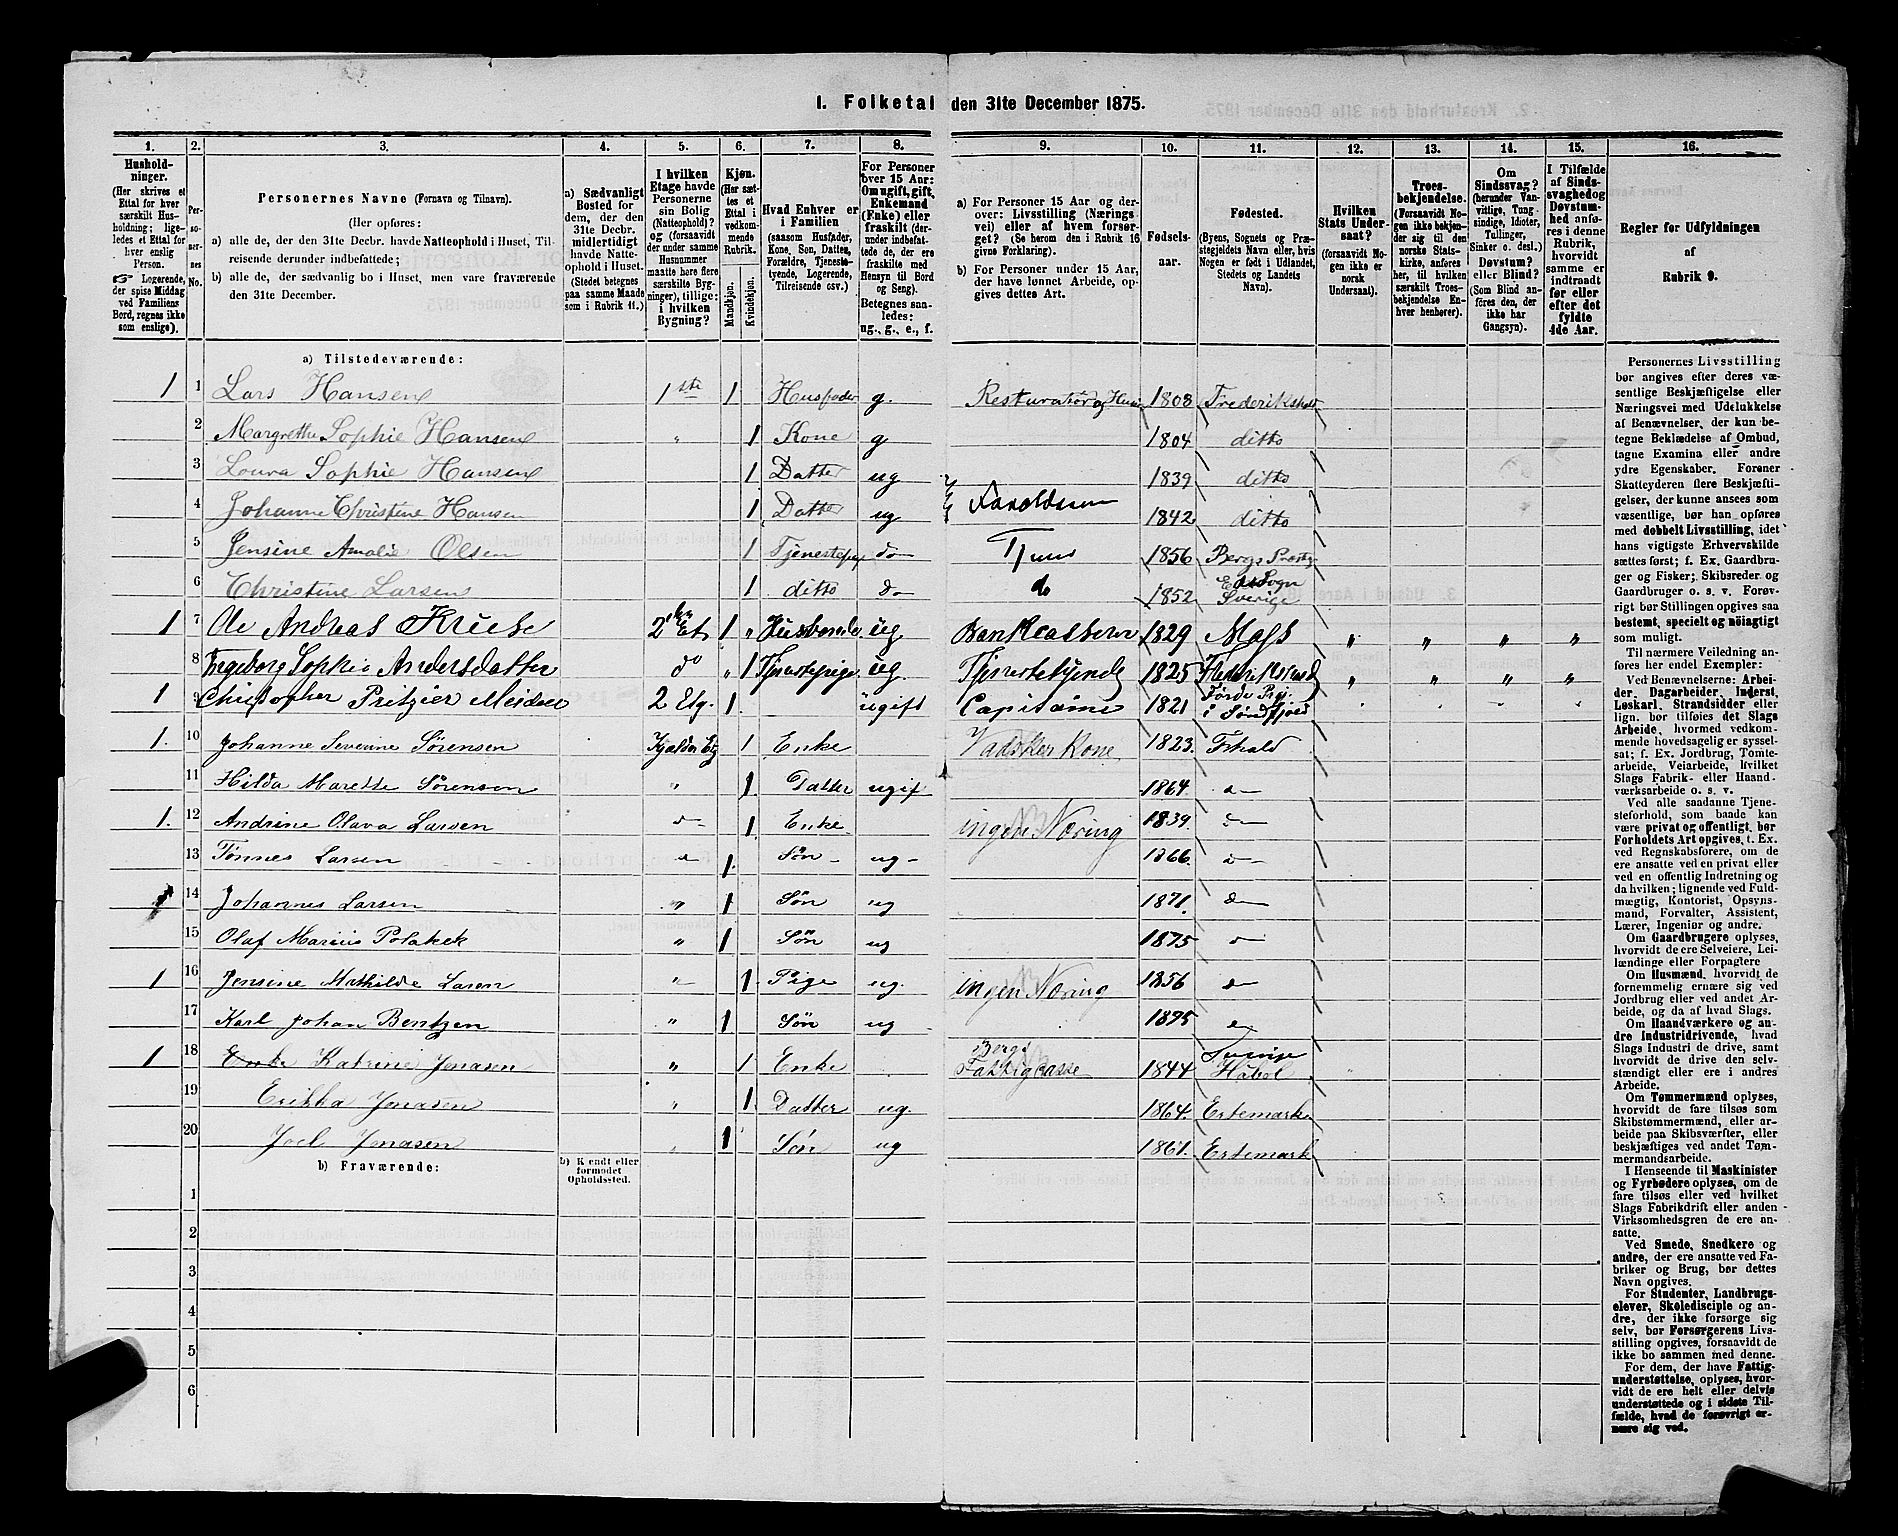 1. Folketal den 31te December 1875.
1. 2. 3. 4. 5. 6. 7. 8. 9. 10. 11. 12. 13. 14. 15. 16.
Hushold-
ninger.
(Her skrives et
Ettal for hver
særskilt Hus-
holdning; lige-
ledes et Ettal for
hver enslig
Person.
Logerende,
der spise Middag
ved Familiens
Bord, regnes ikke
som enslige).
Per-
so-
ner-
nes
No.
Personernes Navne (Fornavn og Tilnavn).
(Her opføres:
a) alle de, der den 31te Decbr. havde Natteophold i Huset, Til-
reisende derunder indbefattede;
b) alle de, der sædvanlig bo i Huset, men vare fraværende
den 31te December.
a) Sædvanligt
Bosted for
dem, der den
31te Decbr.
midlertidigt
havde Natte-
ophold i Huset.
(Stedet betegnes
paa samme Maade
som i Rubrik 11.)
I hvilken
Etage havde
Personerne
sin Bolig
(Natteophold)?
og (forsaavidt
der under samme
Husnummer
maatte høre flere
særskilte Byg-
ninger), tillige:
i hvilken
Bygning?
Kjøn.
(Her sæt-
tes et
Ettal i
vedkom-
mende
Rubrik.
Mandkjøn.
Kvindekjøn.
Hvad Enhver er
i Familien
(saasom Husfader,
Kone, Søn, Datter,
Forældre, Tjeneste-
tyende, Logerende,
Tilreisende osv.)
For Personer
over 15 Aar:
Om ugift, gift,
Enkemand
(Enke) eller
fraskilt (der-
under indbefat-
tede de, der ere
fraskilte med
Hensyn til Bord
og Seng).
Betegnes saa-
ledes:
ug., g., e., f.
a) For Personer 15 Aar og der-
over: Livsstilling (Nærings-
vei) eller af hvem forsør-
get? (Se herom den i Rubrik 16
givne Forklaring).
b) For Personer under 15 Aar,
der have lønnet Arbeide, op-
gives dettes Art.
Fødsels-
aar.
Fødested.
(Byens, Sognets og Præ-
stegjeldets Navn, eller, hvis
Nogen er født i Udlandet,
Stedets og Landets
Navn).
Hvilken
Stats Under-
saat?
(forsaavidt No-
gen ikke er
norsk
Undersaat).
Troes-
bekjendelse.
(Forsaavidt No-
gen ikke bekjen-
der sig til den
norske Stats-
kirke, anføres
her, til hvilken
særskilt Troes-
bekjendelse En-
hver henhører).
Om
Sindssvag?
(herunder Van-
vittige, Tung-
sindige, Idioter,
Tullinger,
Sinker o. desl.)
Døvstum?
eller Blind?
(Som Blind an-
føres den, der
ikke har
Gangsyn).
I Tilfælde
af Sinds-
svaghed og
Døvstum-
hed anfø-
res i denne
Rubrik,
hvorvidt
samme er
indtraadt
før eller
efter det
fyldte
4de Aar.
Regler for Udfyldningen
af
Rubrik 9.
a) Tilstedeværende:
1 1 Lars Hansen 1ste 1 Husfader g. 1808 Frederikshald
2 Margrethe Sophie Hansen " 1 Kone g 1804 ditto
3 Loura Sophie Hansen 1 Datter ug 1839 ditto
4 Johanne Christine Hansen 1 Datter ug 1842 ditto
5 Jensine Amalie Olsen 1 do 1856 Bergs
6 Christine Larsen 1 ditto do do 1852 Sogn Sverige
1 7 Ole Andreas 2 Et. 1 " ug. 1829 " " " "
8 Ingeborg Sophie Andersdatter do " 1 Tjenestepige ug. Tjenestetyende 1825 " " " "
1 9 Christopher Pritzier Meidell 2 Etg. 1 ugift Capitaine 1821 Førde Pgj. i Søndfjord
1. 10 Johanne Severine Sørensen 1 Enke Vadsker Kone 1823. Fhald
11 Hilda Marette Sørensen " 1. Datter ugif 1864.
1. 12 Andrine Olava Larsen do 1. Enke ingen Næring 1839. do
13 Tønnes Larsen 1. Søn ug 1866.
14 Johannes Larsen " 1 Søn ug 1871. do
15 Olaf Marius Polakek " 1 Søn ug 1875
1 16 Jensine Mathilde Larsen " 1 Pige ug. ingen Næring 1856
17 Karl Johan Bentzen " 1 Søn ug
1 18 Enke Katrine Jonasen " 1 Enke Bergs Fattigcasse 1844
19 Erikka Jonasen " 1. Datter ug. 1864. Ertemarke
20 Joel Jonasen " 1 Søn ug 1861. Ertemark
b) Fraværende:
b) Kjendt eller
formodet
Opholdssted.
1
2
3
4
5
6
Personernes Livsstilling
bør angives efter deres væ-
sentlige Beskjæftigelse eller
Næringsvei med Udelukkelse
af Benævnelser, der kun be-
tegne Beklædelse af Ombud,
tagne Examina eller andre
ydre Egenskaber. Forener
Skatteyderen flere Beskjæfti-
gelser, der kunne ansees som
væsentlige, bør han opføres
med dobbelt Livsstilling, idet
hans vigtigste Erhvervskilde
sættes først; f. Ex. Gaardbru-
ger og Fisker; Skibsreder og
Gaardbruger o. s. v. Forøv-
rigt bør Stillingen opgives saa
bestemt, specielt og nöiagtigt
som muligt.
Til nærmere Veiledning
anføres her endel Exempler:
Ved Benævnelserne: Arbei-
der, Dagarbeider, Inderst,
Løskarl, Strandsidder eller
lign. bør tilføies det Slags
Arbeide, hvormed vedkom-
mende hovedsagelig er syssel-
sat; f. Ex. Jordbrug, Tomte-
arbeide, Veiarbeide, hvilket
Slags Fabrik- eller Haand-
værksarbeide o. s. v.
Ved alle saadanne Tjene-
steforhold, som baade kan
være privat og offentligt, bør
Forholdets Art opgives, t. Ex.
ved Regnskabsførere, om de
ere ansatte ved en privat eller
ved en offentlig Indretning og
da hvilken; lignende ved Fuld-
mægtig, Kontorist, Opsyns-
mand, Forvalter, Assistent,
Lærer, Ingeniør og andre.
Om Gaardbrugere oplyses,
hvorvidt de ere Selveiere, Lei-
lændinge eller Forpagtere
Om Husmænd, hvorvidt de
fornemmelig ernære sig ved
Jordbrug eller ved andet Ar-
beide, og da ved hvad Slags.
Om Haandværkere og an-
dre Industridrivende, hvad
Slags Industri de drive, samt
hvorvidt de drive den selv-
stændigt eller ere i andres
Arbeide.
Om Tømmermænd oplyses,
hvorvidt de fare tilsøs som
Skibstømmermænd, eller ar-
beide paa Skibsværfter, eller
beskjæftiges ved andet Tøm-
mermandsarbeide.
I Henseende til Maskinister
og Fyrbødere oplyses, om de
fare tilsøs eller ved hvilket
Slags Fabrikdrift eller anden
Virksomhedsgren de ere an-
satte.
Ved Smede, Snedkere og
andre, der ere ansatte ved Fa-
briker og Brug, bør dettes
Navn opgives.
For Studenter, Landbrugs-
elever, Skoledisciple og an-
dre, der ikke forsørge sig
selv, bør Forsørgerens Livs-
stilling opgives, forsaavidt de
ikke bo sammen med denne.
For dem, der have Fattig-
understøttelse, oplyses, hvor-
vidt de ere helt eller delvis
understøttede og i sidste Til-
fælde, hvad de forøvrigt er-
nære sig ved.